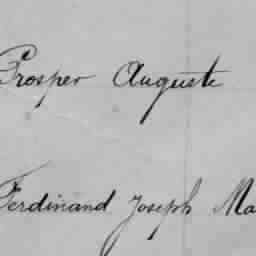 Prosper Auguste
Ferdinand Joseph Ma